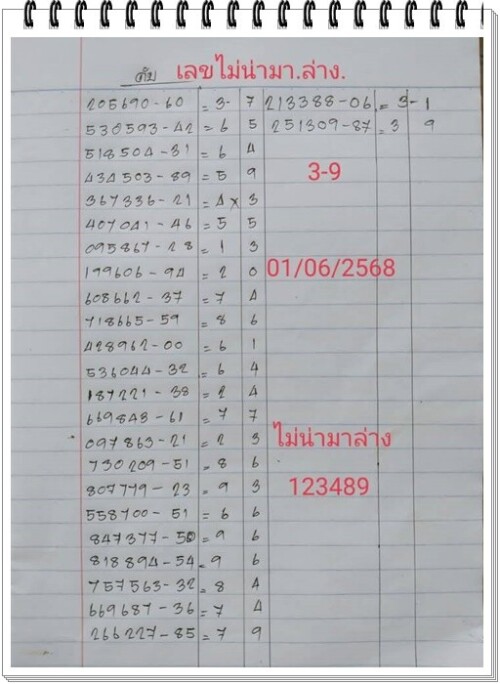 ดับ เลขไม่น่ามา.ล่าง.
205690-60 = 3- 7 213388-06 = 3-1
530593-42 = 6 5 251309-87 = 3 9
518504-31 = 6 4
434503-89 = 5 9 3-9
367336-21 = 4 x 3
407041-46 = 5 5
095867-28 = 1 3
199606-94 = 2 0 01/06/2568
608662-37 = 7 4
718665-59 = 8 6
428962-00 = 6 1
536044-32 = 6 4
187221-38 = 2 4
669843-61 = 7 7
097863-21 = 2 3 ไม่น่ามาล่าง
730209-51 = 8 6
807779-23 = 9 3 123489
558700-51 = 6 6
847377-50 = 9 6
818894-54 = 9 6
757563-32 = 8 4
669687-36 = 7 4
266227-85 = 7 9